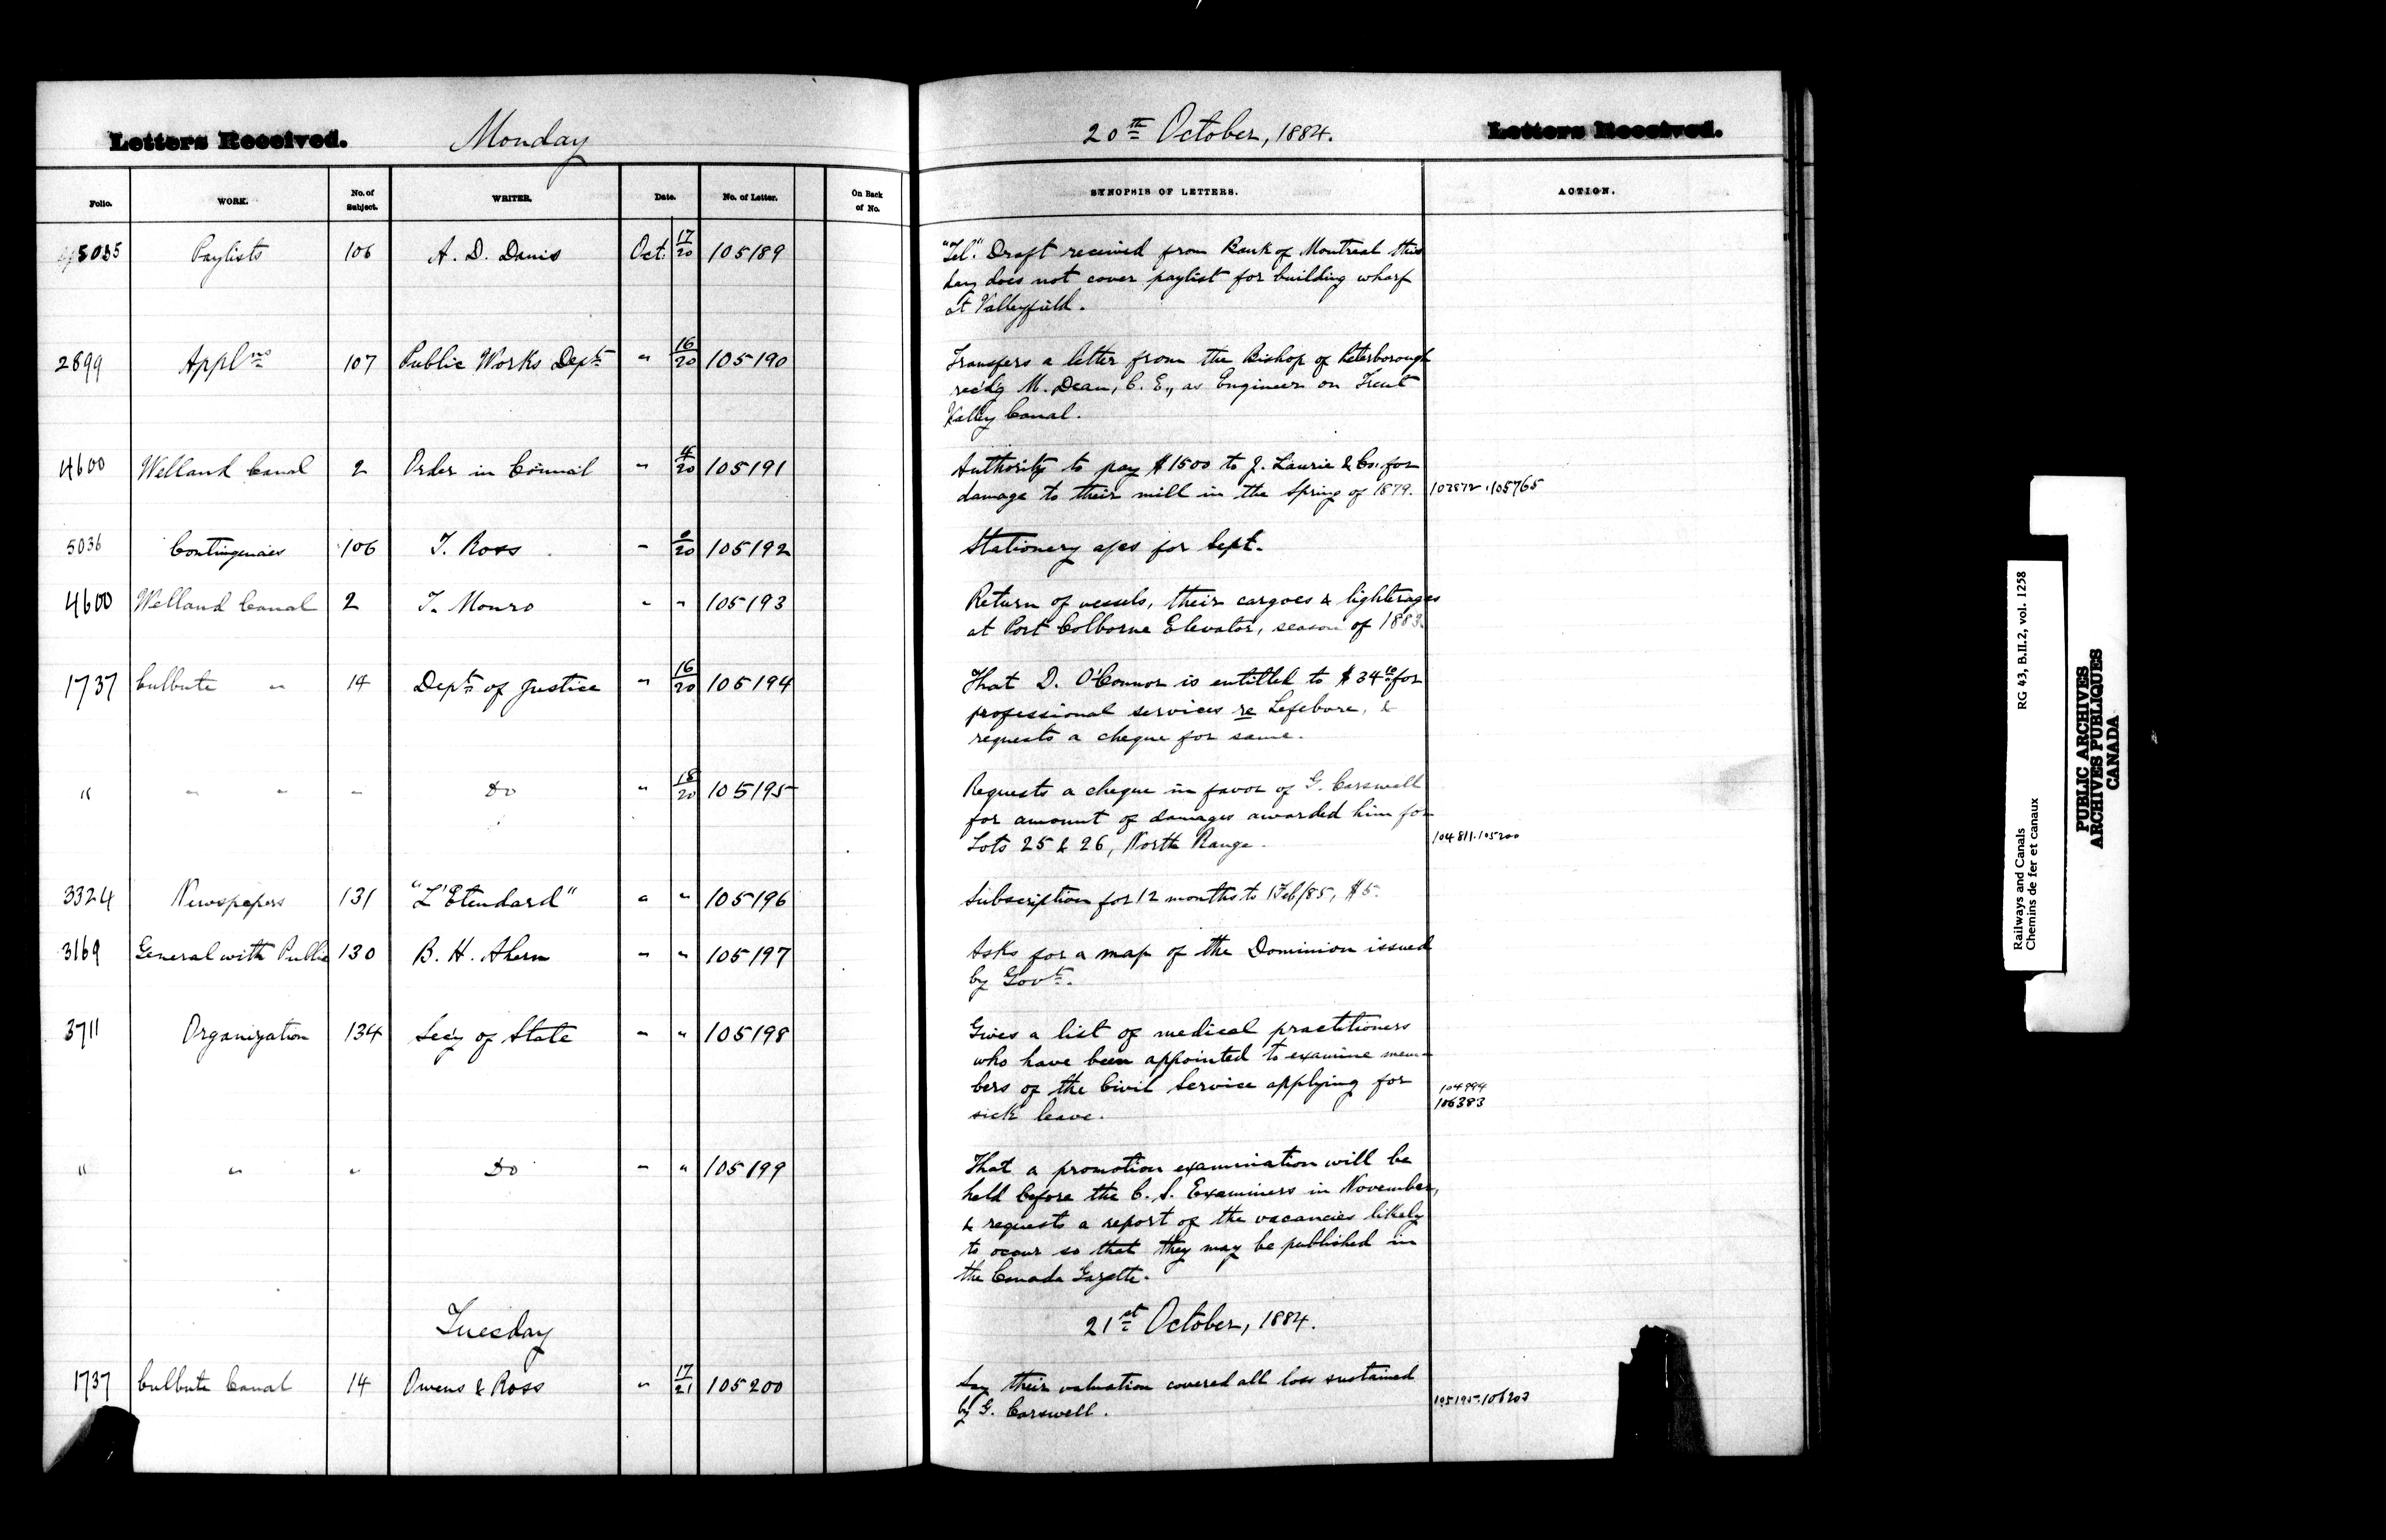 Letters Received. Monday 20th October, 1884. Letters Received.
Folio. WORK. No. of Subject. WRITER. Date. No. of Letter. On Back of No. SYNOPSIS OF LETTERS. ACTION.
5035 Paylists 106 A. D. Danis Oct. 17/20 105189 "Tel". Draft received from Bank of Montreal this
day does not cover paylist for building wharf
at Valleyfield.
2899 Applns 107 Public Works Dept " 16/20 105190 Transfers a letter from the Bishop of Peterborough
recd'g M. Dean, C. E., as Engineer on Trent
Valley Canal.
4600 Welland Canal 2 Order in Council " 20 105191 Authority to pay $1500 to J. Laurie & Co. for
damage to their mill in the Spring of 1879. 102872.105765
5036 Contingencies 106 T. Ross " 20 105192 Stationery a/cs for Sept.
4600 Welland Canal 2 T. Monro " " 105193 Return of vessels, their cargoes & lighterages
at Port Colborne Elevator, season of 1883.
1737 Culbute " 14 Dept of Justice " 16/20 105194 That D. O'Connor is entitled to $34 for
professional services re Lefebvre, &
requests a cheque for same.
" " " " Do " 18/20 105195 Requests a cheque in favor of G. Carswell
for amount of damages awarded him for
Lots 25 & 26, North Range. 104811.105200
3324 Newspapers 131 "L'Etendard" " " 105196 Subscription for 12 months to 1 Feb/85, $5.
3169 General with Public 130 B. H. Ahern " " 105197 Asks for a map of the Dominion issued
by Govt.
3711 Organization 134 Secy of State " " 105198 Gives a list of medical practitioners
who have been appointed to examine mem-
bers of the Civil Service applying for 104994
sick leave. 106383
" " " Do " " 105199 That a promotion examination will be
held before the C. S. Examiners in November,
& requests a report of the vacancies likely
to occur so that they may be published in
the Canada Gazette.
Tuesday 21st October, 1884.
1737 Culbute Canal 14 Owens & Ross " 17/21 105200 Say their valuation covered all loss sustained
by G. Carswell. 105195.106203
Railways and Canals RG 43, B.II.2, vol. 1258
Chemins de fer et canaux
PUBLIC ARCHIVES
ARCHIVES PUBLIQUES
CANADA